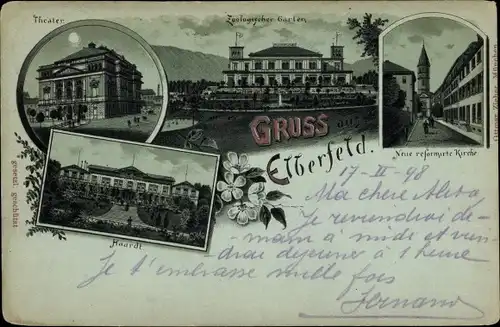 Theater.
Zoologischer Garten
GRUSS aus
Elberfeld.
Neue reformirte Kirche.
Haardt.
gesetzl. geschützt
17-II-98
Ma chère
Je reviendrai de-
main à midi et vien
drai déjeuner à 1 heure
Je t'embrasse mille
fois
Fernand